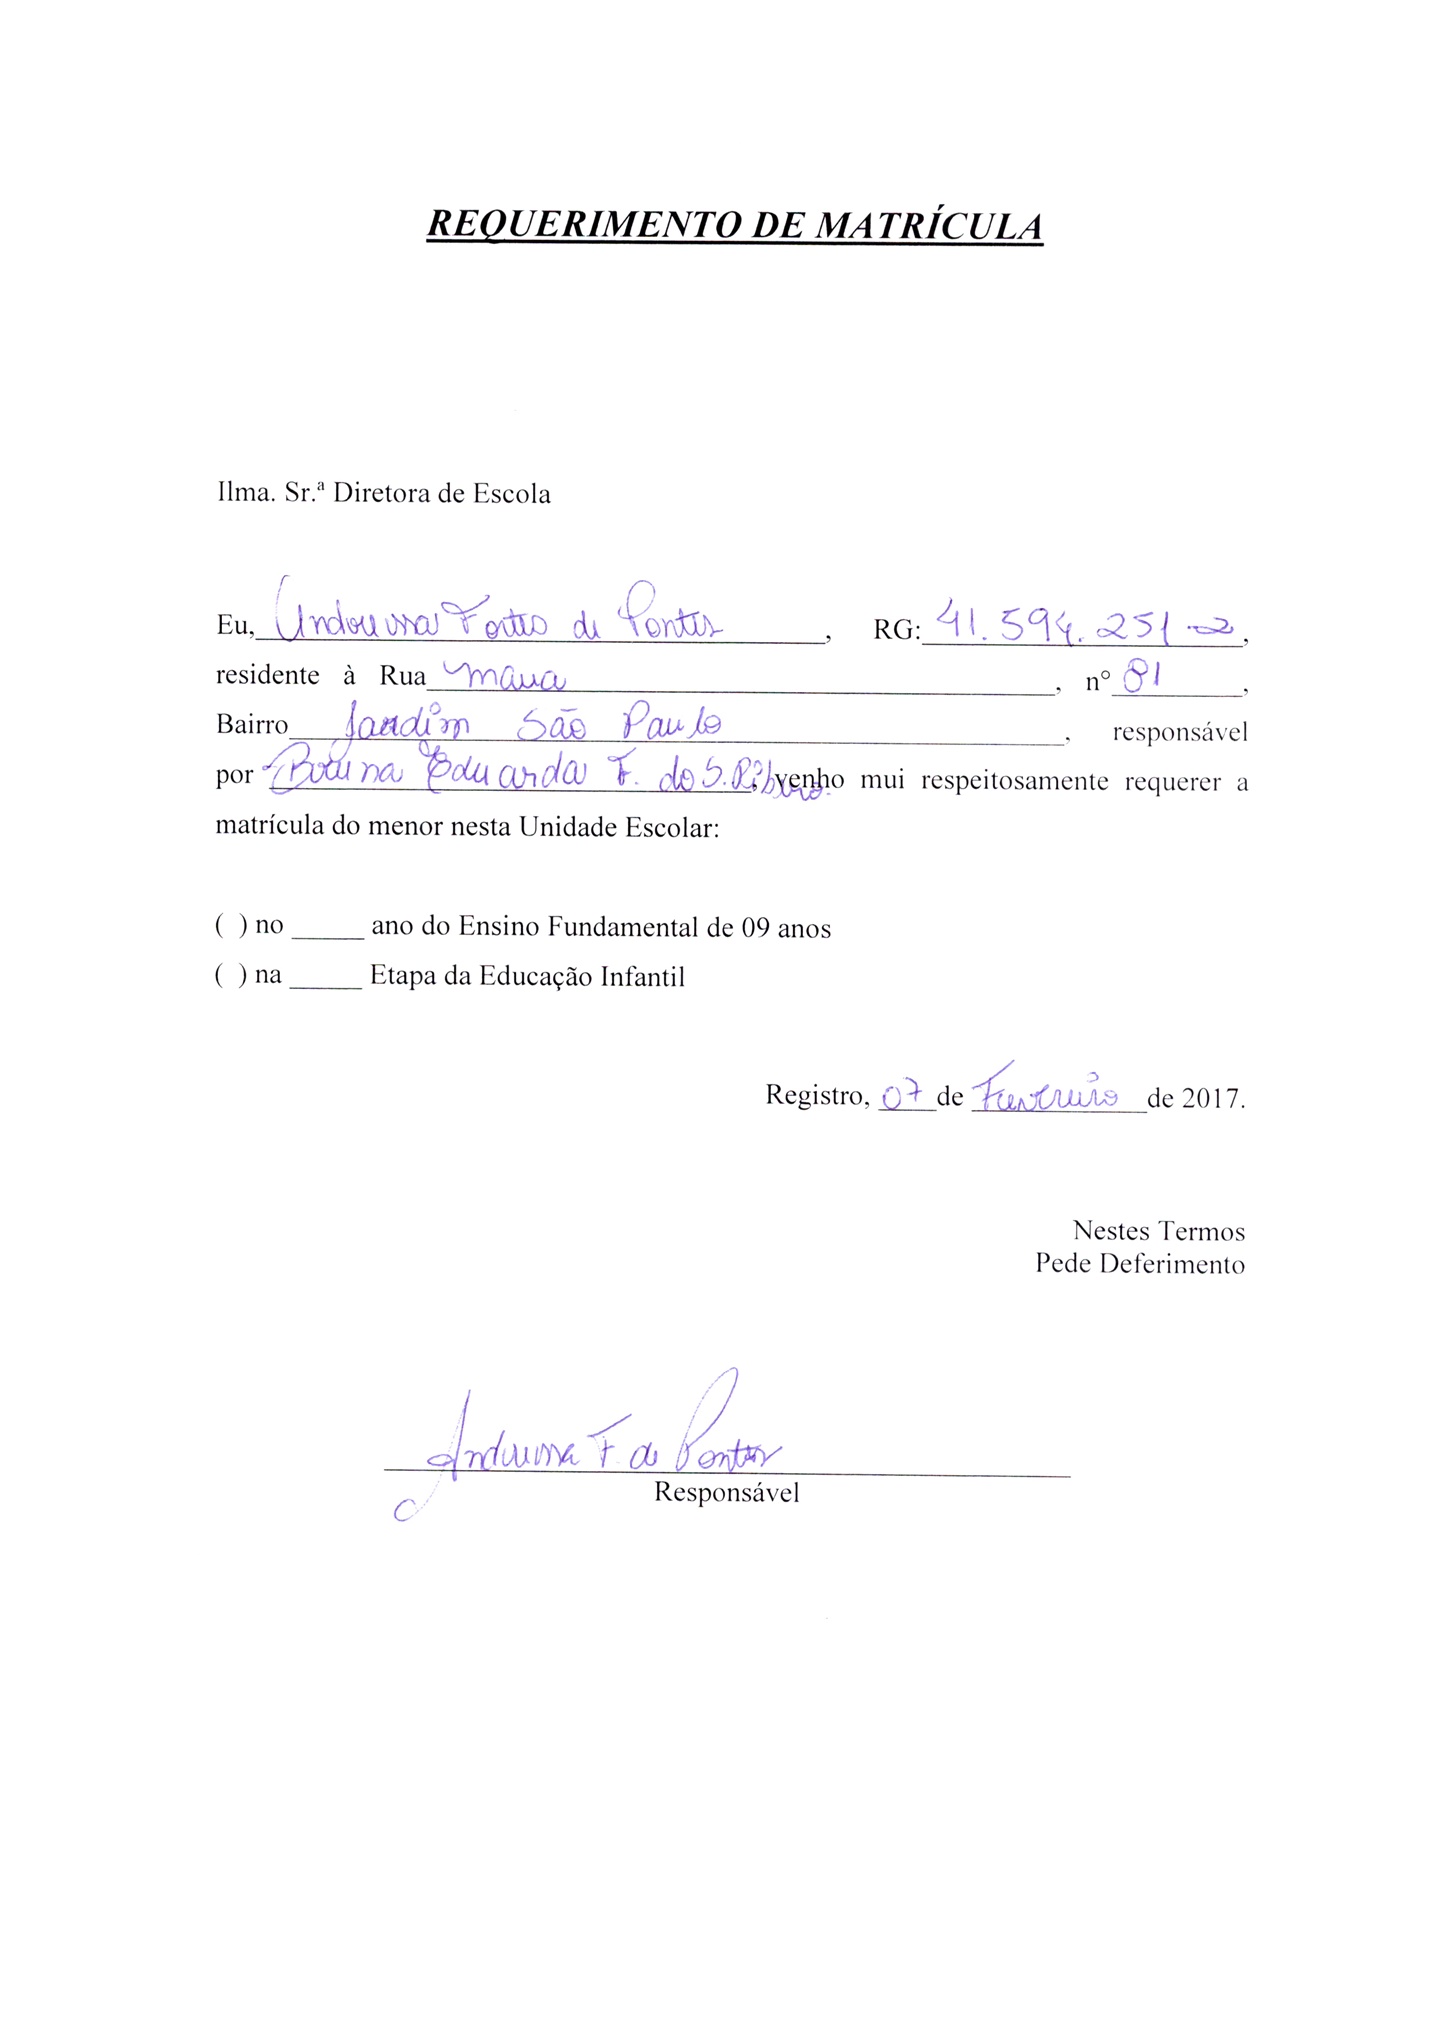 REQUERIMENTO DE MATRÍCULA
Ilma. Sr.ª Diretora de Escola
Eu, Andreussa Fortes de Pontes, RG: 41.594.251-2,
residente à Rua Maua, nº 81,
Bairro Jardim São Paulo, responsável
por Bruna Eduarda F. do S. Ribeiro, venho mui respeitosamente requerer a
matrícula do menor nesta Unidade Escolar:
( ) no _____ ano do Ensino Fundamental de 09 anos
( ) na _____ Etapa da Educação Infantil
Registro, 07 de Fevereiro de 2017.
Nestes Termos
Pede Deferimento
F. de Pontes
Responsável